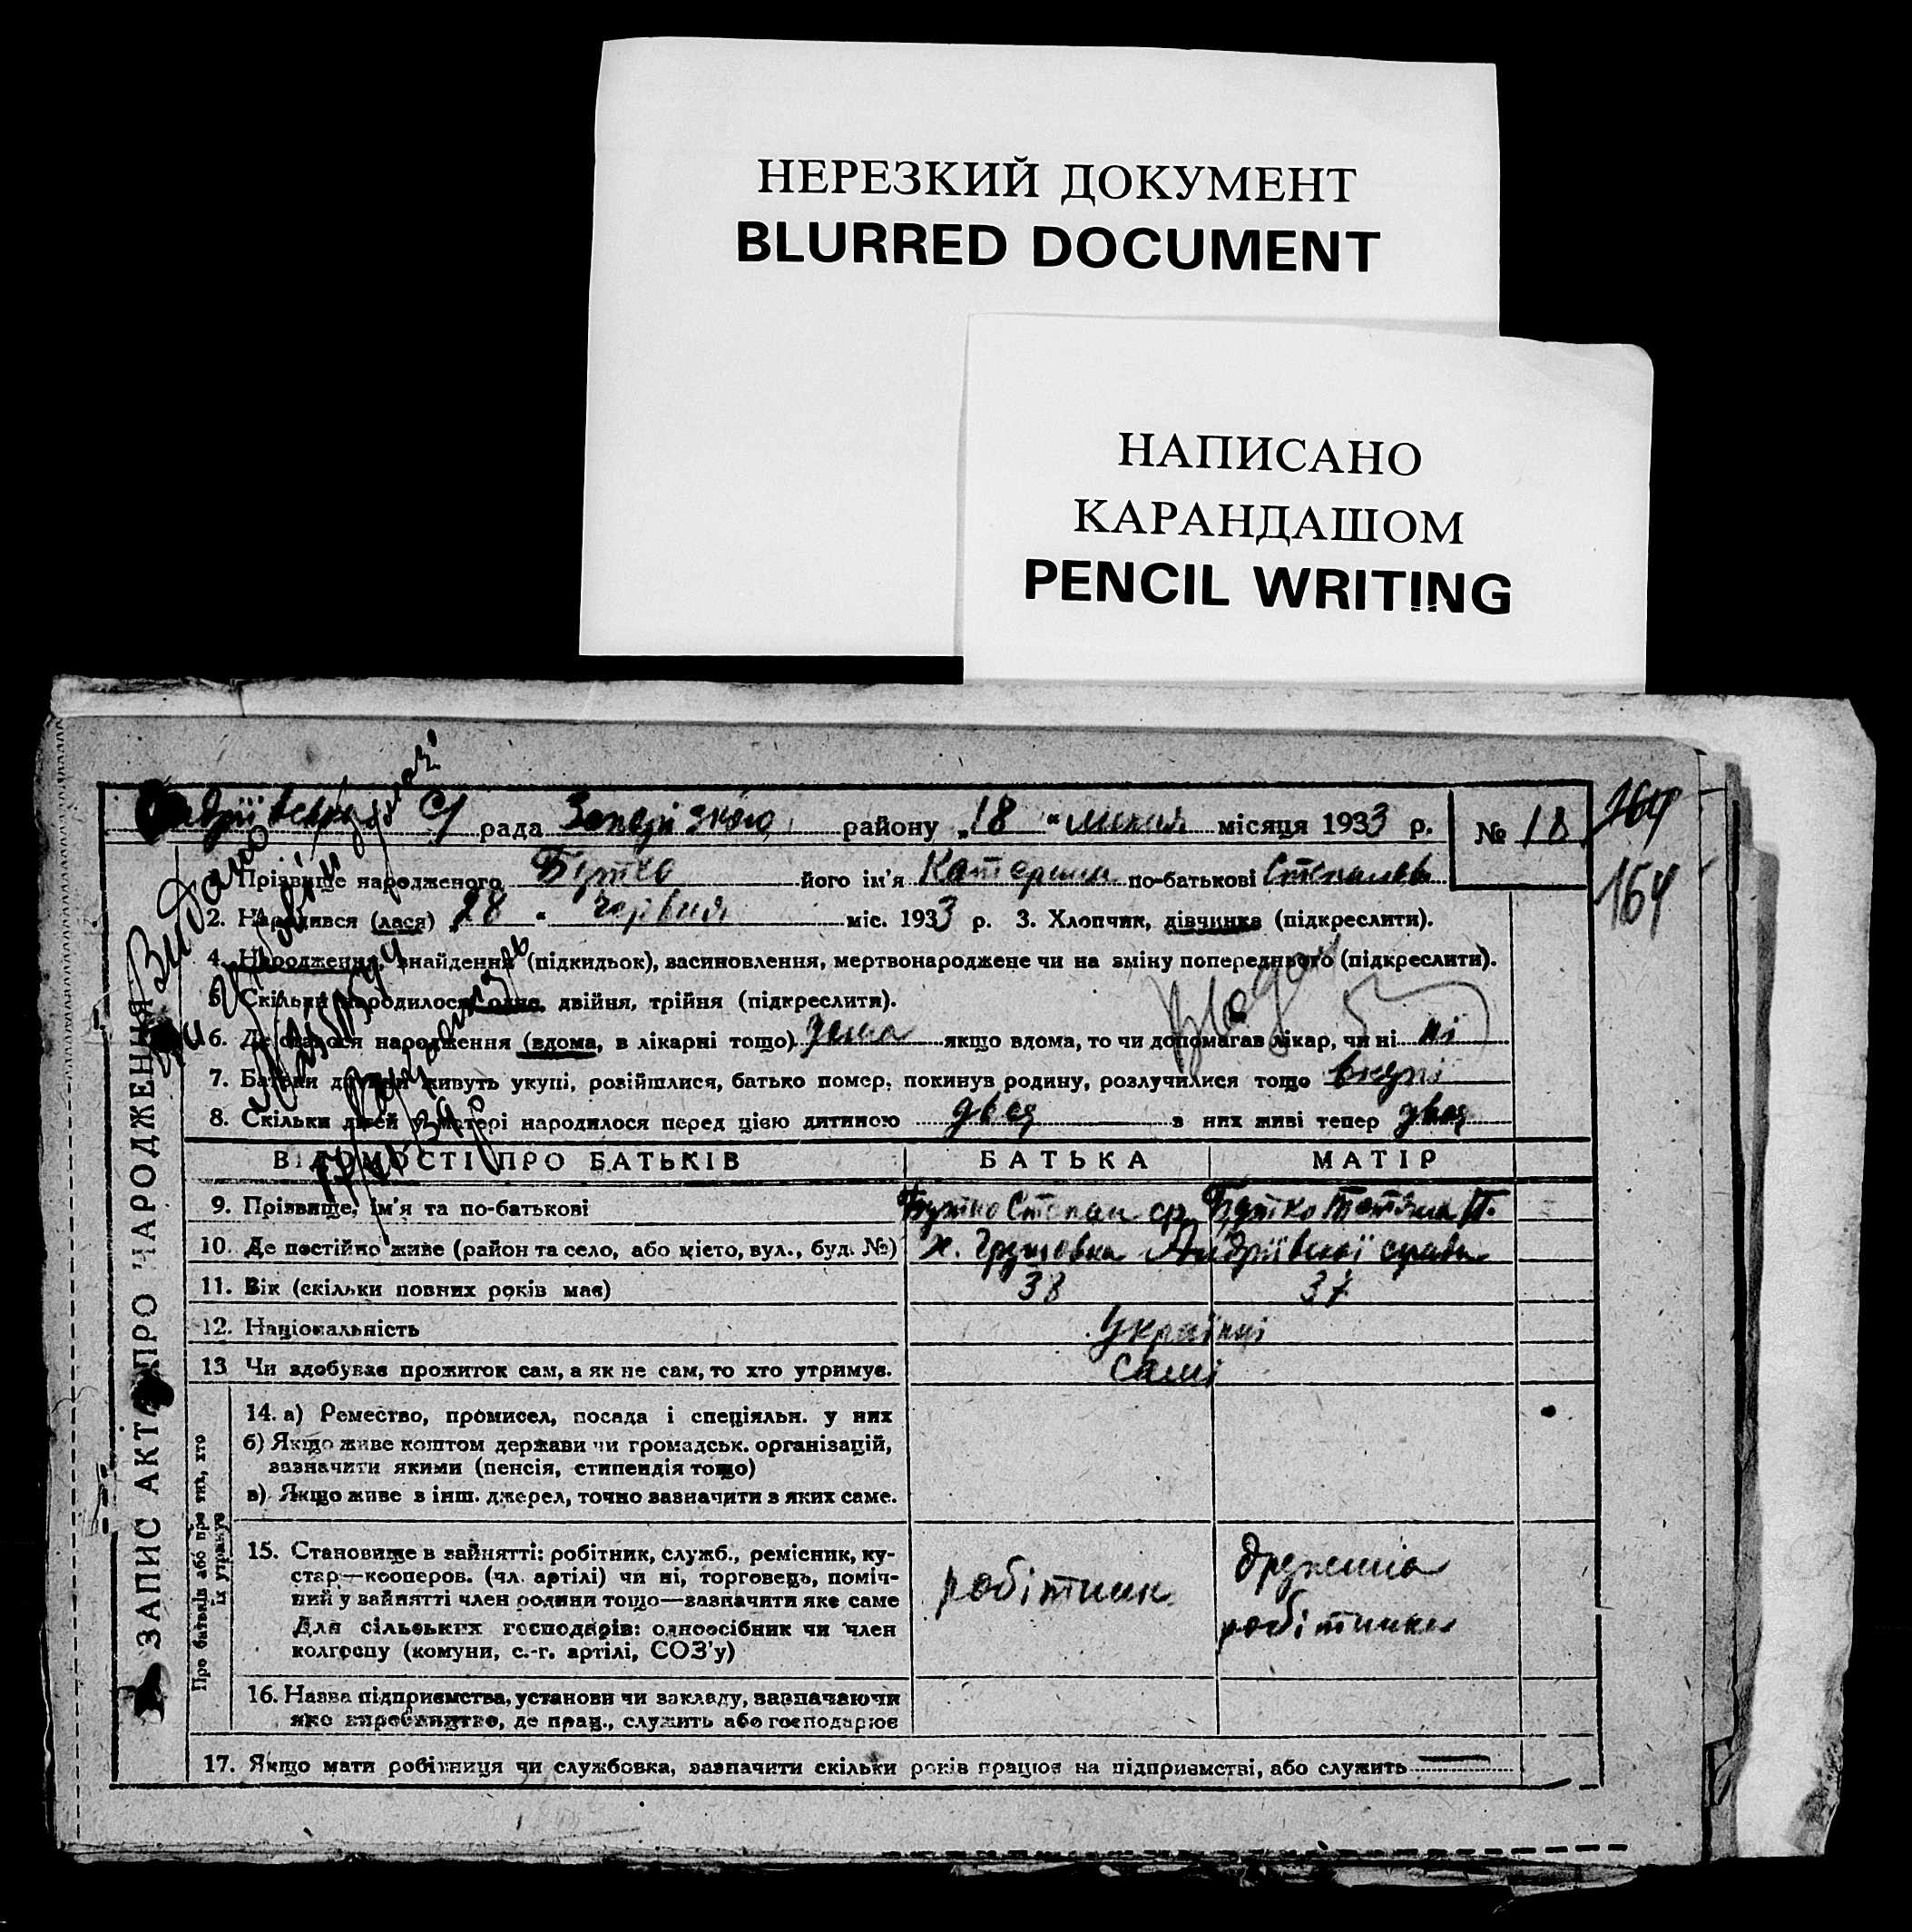 НЕРЕЗКИЙ ДОКУМЕНТ
BLURRED DOCUMENT
НАПИСАНО
КАРАНДАШОМ
PENCIL WRITING
С/ рада Запорізького району „18 " липня місяця 1933 р. № 18
164
164
Прізвище народженого Бутко його ім'я Катерина по-батькові Степанів
2. Народився (лася) 28 " червня міс. 1933 р. 3. Хлопчик, дівчинка (підкреслити).
4. Народження, знайдення (підкидьок), васиновлення, мертвонароджене чи на зміну попереднього (підкреслити).
5. Скільки народилося одне, двійня, трійня (підкреслити).
6. Де сталося народження (вдома, в лікарні тощо) дома якщо вдома, то чи допомагав лікар, чи ні ні
7. Батьки дитини живуть укупі, розійшлися, батько помер, покинув родину, розлучилися тощо вкупі
8. Скільки дітей у матері народилося перед цією дитиною двоє з них живі тепер двоє
Видано
ВІДОМОСТІ ПРО БАТЬКІВ БАТЬКА МАТІР
9. Прізвище, ім'я та по-батькові Бутко Степан Бутко Тетяна П.
10. Де постійно живе (район та село, або місто, вул., буд. №) х. Грушовка Андріївської с/ради
11. Вік (скільки повних років має) 38 37
12. Національність Українці
13 Чи здобуває прожиток сам, а як не сам, то хто утримує. самі
14. а) Ремество, промисел, посада і спеціяльн. у них
б) Якщо живе коштом держави чи громадськ. організацій,
зазначити якими (пенсія, стипендія тощо)
в) Якщо живе з інш. джерел, точно зазначити з яких саме.
15. Становище в зайнятті: робітник, служб., ремісник, ку-
стар—кооперов. (чл. артілі) чи ні, торговець, поміч-
ний у зайнятті член родини тощо—зазначити яке саме
Для сільських господарів: одноосібник чи член
колгоспу (комуни, с.-г. артілі, СОЗ'у)
робітник
дружина
робітника
16. Назва підприємства, установи чи закладу, зазначаючи
яке виробництво, де прац., служить або господарює
17. Якщо мати робітниця чи службовка, зазначити скільки років працює на підприємстві, або служить —
ЗАПИС АКТА ПРО НАРОДЖЕННЯ
Про батьків або про тих, хто
їх утримує